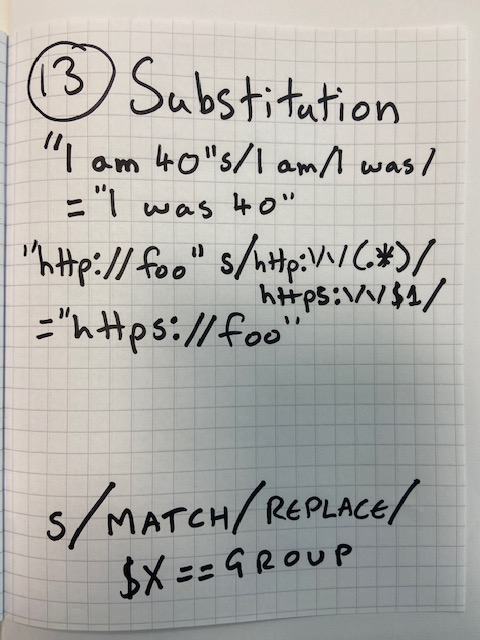 13 Substitution
"I am 40" s/I am/I was/
= "I was 40"
"http://foo" s/http:\/\/(.*)/
https:\/\/$1/
= "https://foo"
s/MATCH/REPLACE/
$X == GROUP